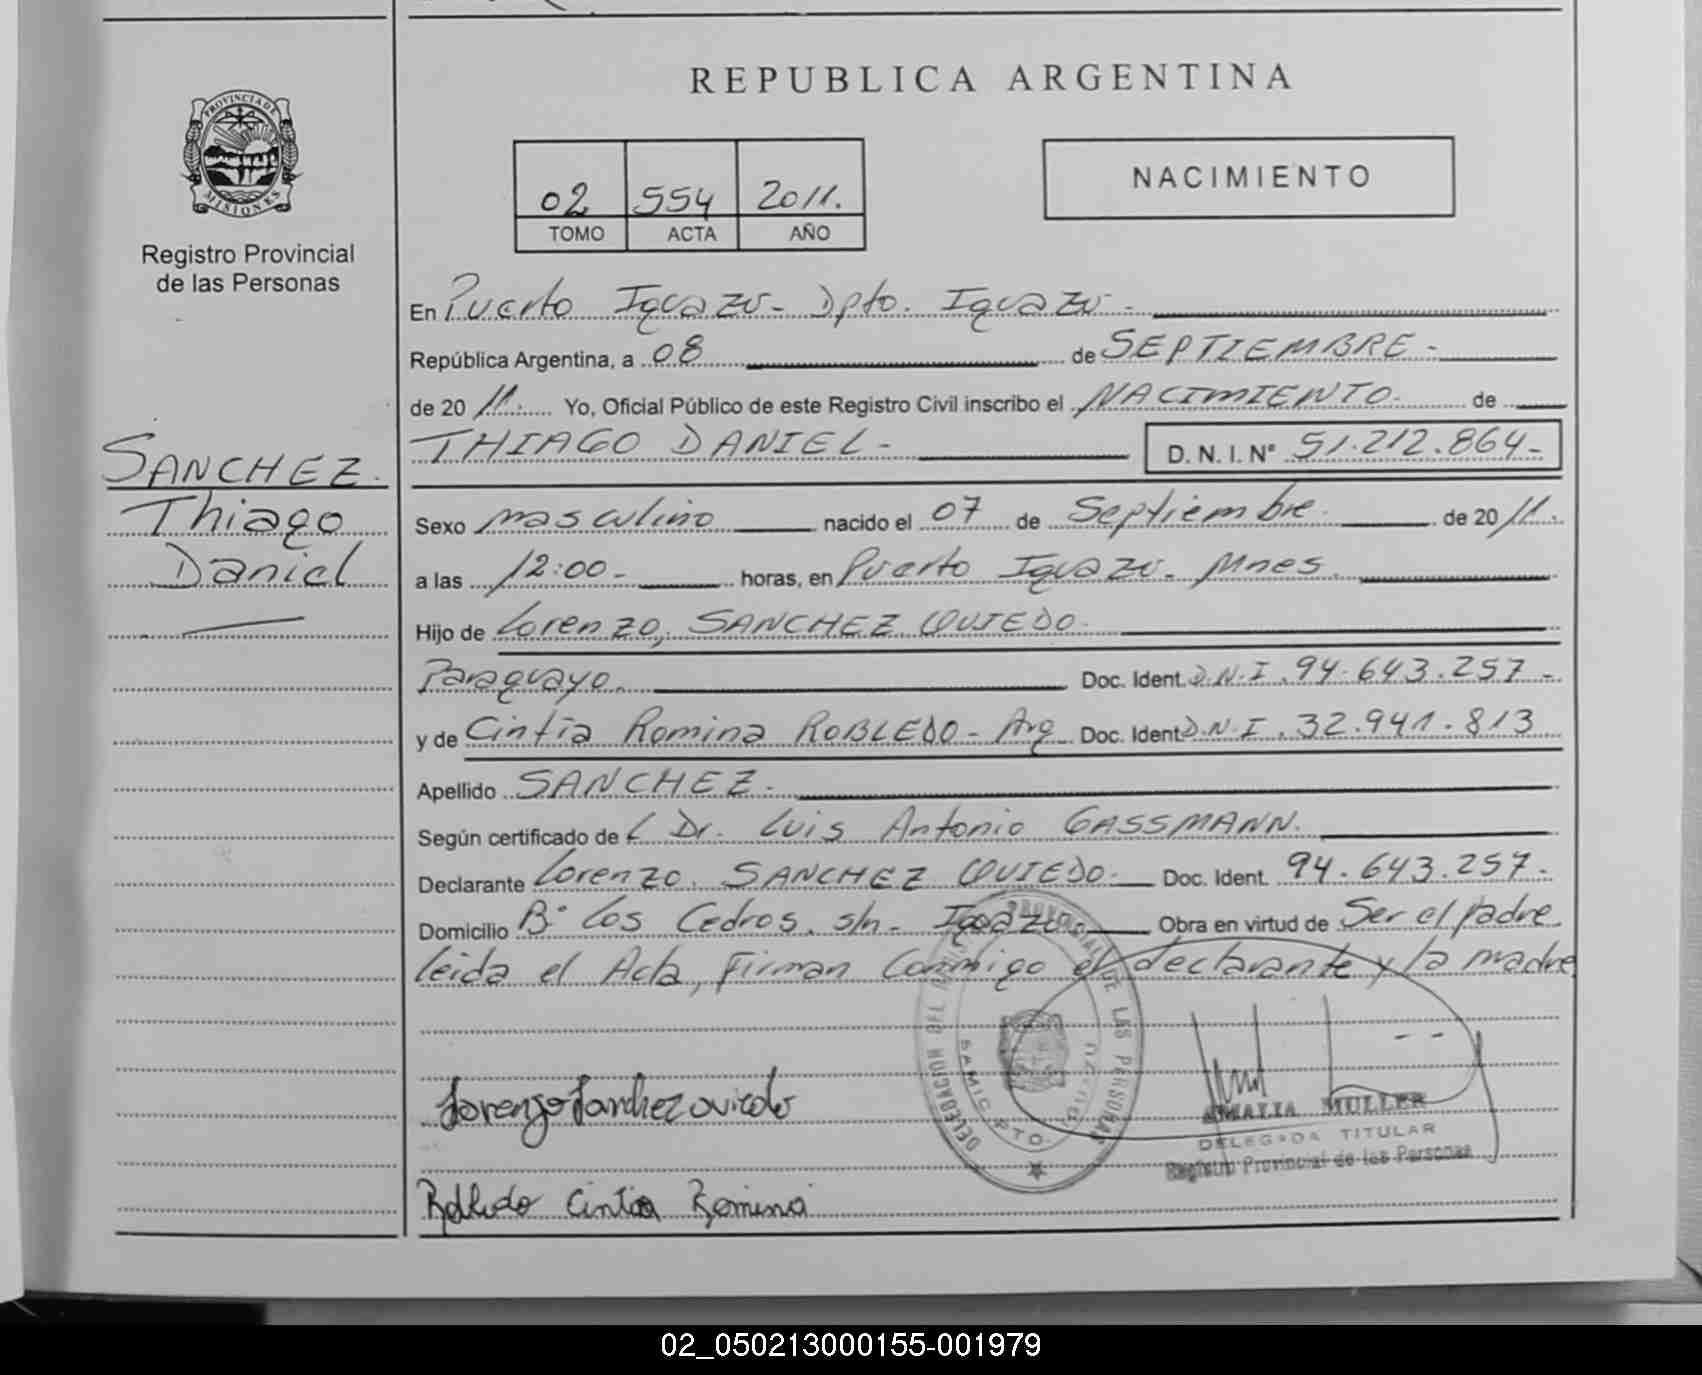 REPUBLICA ARGENTINA
PROVINCIA DE
MISIONES
Registro Provincial
de las Personas
02 554 2011.
TOMO ACTA AÑO
NACIMIENTO
En Puerto Iguazu - Dpto. Iguazu -
República Argentina, a 08 de SEPTIEMBRE -
de 20 11. Yo, Oficial Público de este Registro Civil inscribo el NACIMIENTO - de
THIAGO DANIEL - D. N. I. Nº 51.212.864 -
SANCHEZ.
Thiago
Daniel
Sexo masculino nacido el 07 de Septiembre. de 20 11.
a las 12:00 - horas, en Puerto Iguazu. Mnes.
Hijo de Lorenzo, SANCHEZ OVIEDO.
Paraguayo. Doc. Ident. D.N.I. 94.643.257 -
y de Cintia Romina ROBLEDO - Arg Doc. Ident D.N.I. 32.941.813
Apellido SANCHEZ.
Según certificado de L Dr. Luis Antonio GASSMANN.
Declarante Lorenzo. SANCHEZ OVIEDO. Doc. Ident. 94.643.257 -
Domicilio Bº Los Cedros. s/n - Iguazu Obra en virtud de Ser el padre
leida el Acta, Firman Conmigo el declarante y la madre
Lorenzo Sanchez oviedo
AMALIA MULLER
DELEGADA TITULAR
Registro Provincial de las Personas
Robledo Cintia Romina
02_050213000155-001979